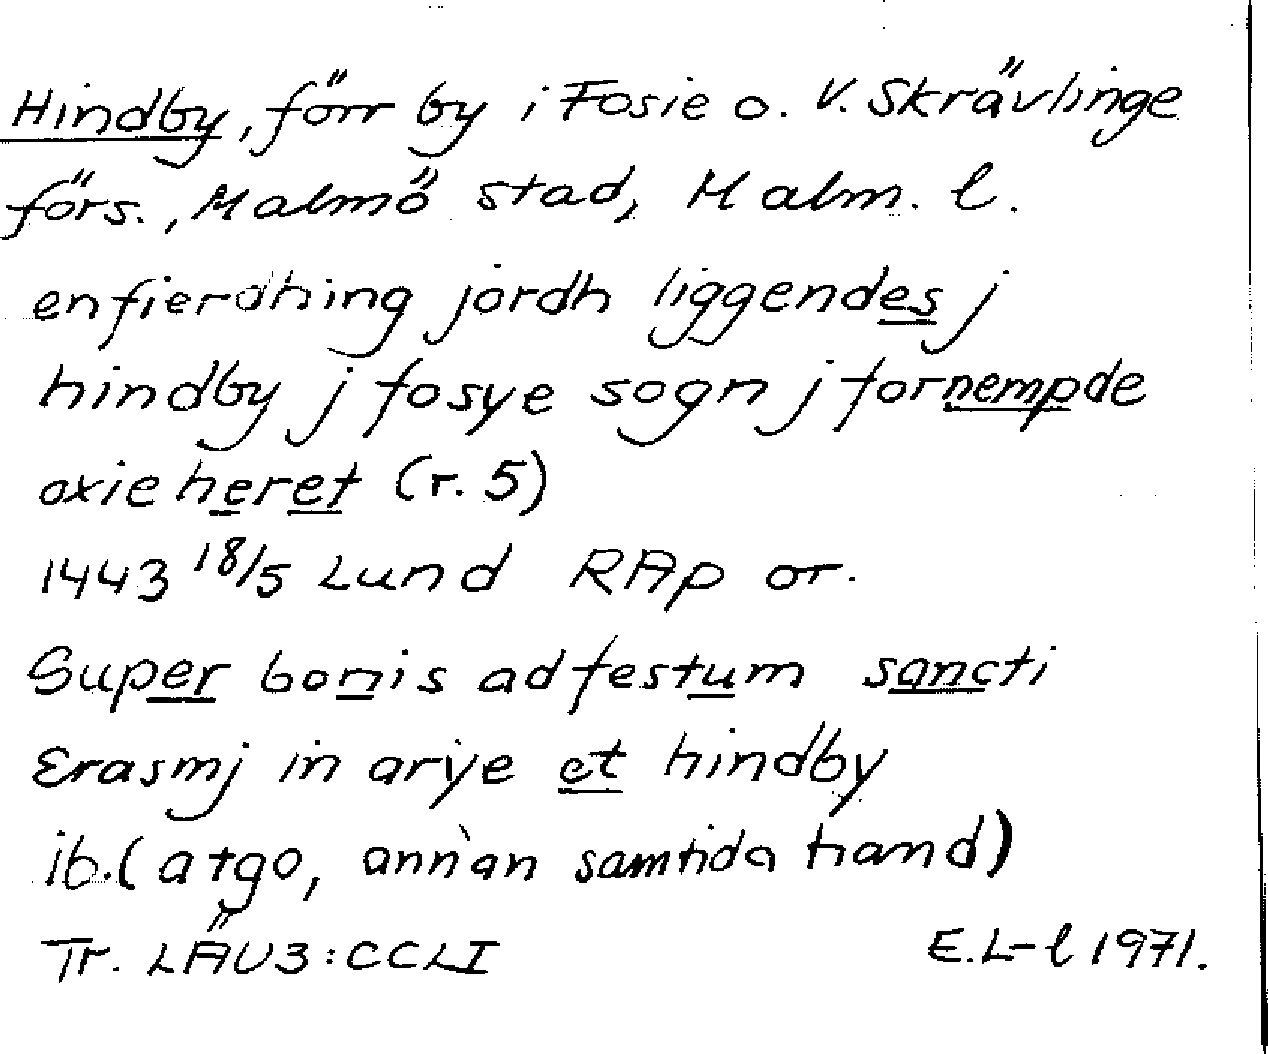 Hindby, förr by i Fosie o. V. Skrävlinge
förs., Malmö stad, Malm. l.
en fierdhing jordh liggendes j
hindby j fosye sogn j fornempde
oxie heret (r. 5)
1443 18/5 Lund RAp or.
Super bonis ad festum sancti
Erasmj in arije et hindby
ib. (a tgo, annan samtida hand)
Tr. LÄU3:CCLI E.L-l 1971.